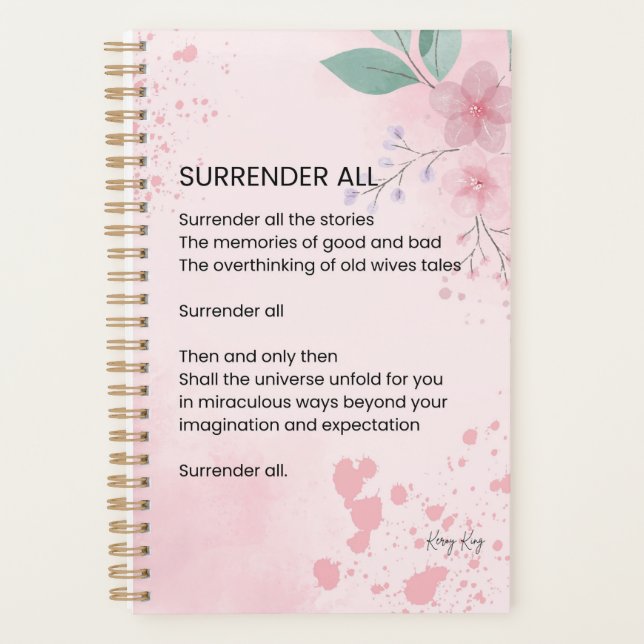 SURRENDER ALL
Surrender all the stories
The memories of good and bad
The overthinking of old wives tales
Surrender all
Then and only then
Shall the universe unfold for you
in miraculous ways beyond your
imagination and expectation
Surrender all.
Keroy King